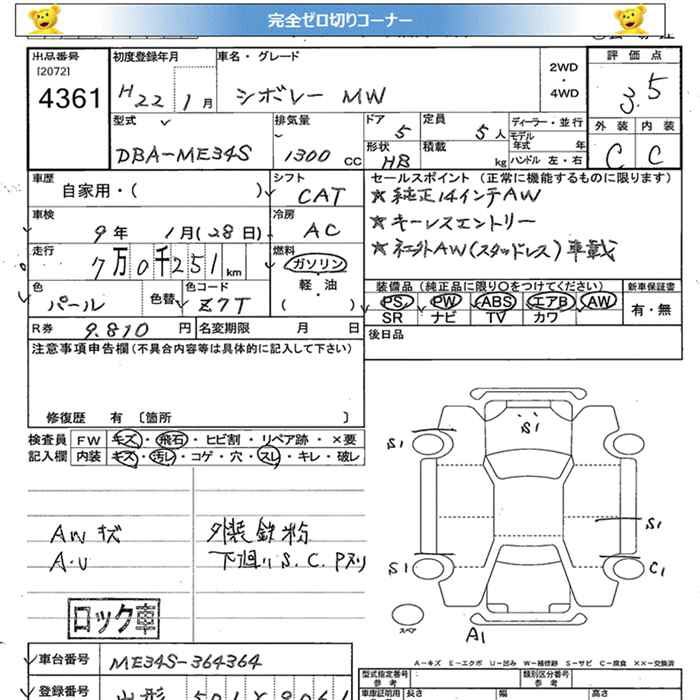 完全ゼロ切りコーナー
出品番号
[2072]
4361
初度登録年月
H22 1月
車名・グレード
シボレー MW
2WD
・
4WD
評価点
3.5
外装 内装
C C
型式
DBA-ME34S
排気量
1300 CC
ドア 5
形状 HB
定員 5人
積載 kg
ディーラー・並行
モデル年式 年
ハンドル 左・右
車歴
自家用・( )
シフト
CAT
セールスポイント (正常に機能するものに限ります)
☆純正14インチAW
☆キーレスエントリー
☆社外AW(スタッドレス)車載
車検
9年 1月(28日)
冷房
AC
走行
7万0千251km
燃料
ガソリン
軽・油
( )
色
パール
色替
色コード
Z7T
装備品 (純正品に限り○をつけてください)
PS PW ABS エアB AW
SR ナビ TV カワ
新車保証書
有・無
R券 9.810 円
名変期限 月 日
後日品
注意事項申告欄(不具合内容等は具体的に記入して下さい)
修復歴 有 〔箇所 〕
検査員
記入欄
FW キズ・飛石・ヒビ割・リペア跡・×要
内装 キズ・汚レ・コゲ・穴・スレ・キレ・破レ
AWキズ
A・U
外装鉄粉
下廻りS.C.Pヌリ
ロック車
S1
S1
S1
S1
C1
スペア
A1
A-キズ E-エクボ U-凹み W-補修跡 S-サビ C-腐食 ××-交換済
車台番号 ME34S-364364
型式指定番号
参考
類別区分番号
参考
登録番号
車庫証明用
長さ 幅 高さ